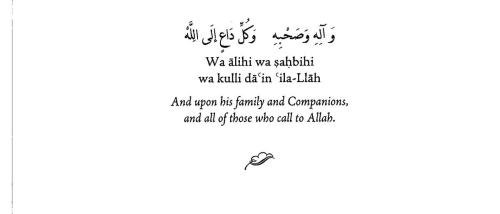 وَ آلِهِ وَصَحْبِهِ وَكُلِّ دَاعٍ إِلَى اللَّهْ
Wa ālihi wa ṣaḥbihi
wa kulli dāʿin ʿila-Llāh
And upon his family and Companions,
and all of those who call to Allah.